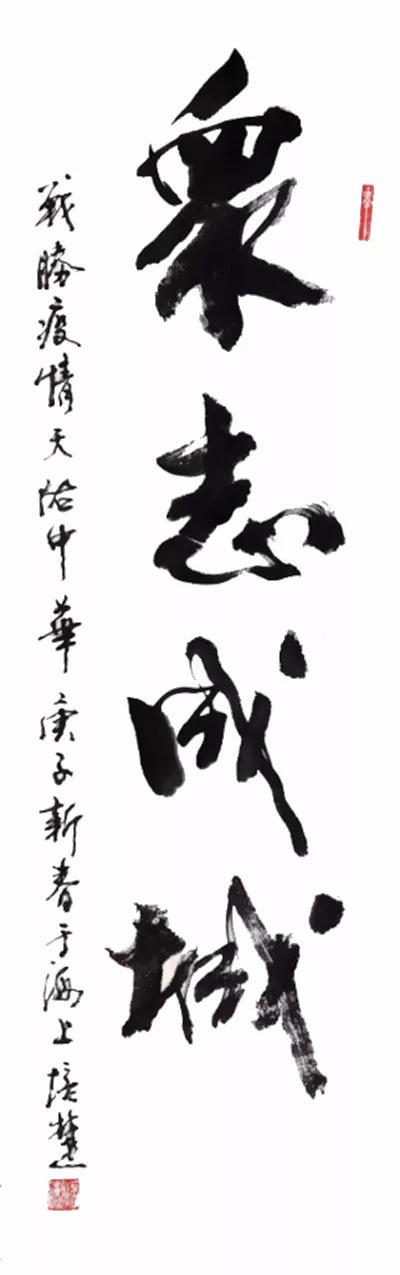 眾志成城
戰勝疫情天佑中華庚子新春于海上培慧